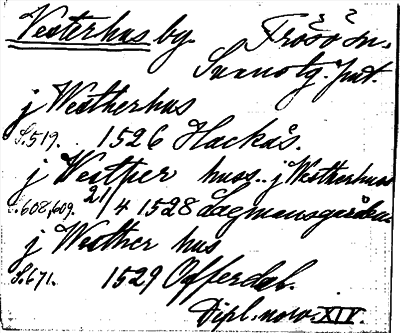 Vesterhus by. Frösö sn.
Sunne tg. Jmt.
j Westherhus
S. 519. 1526 Hackås.
j Vestþer huss.. j Westherhuss
S. 608, 609. 21/4 1528 Lagmansgården
j Westher hus
S. 671. 1529 Offerdal.
Dipl. norv. XIV.